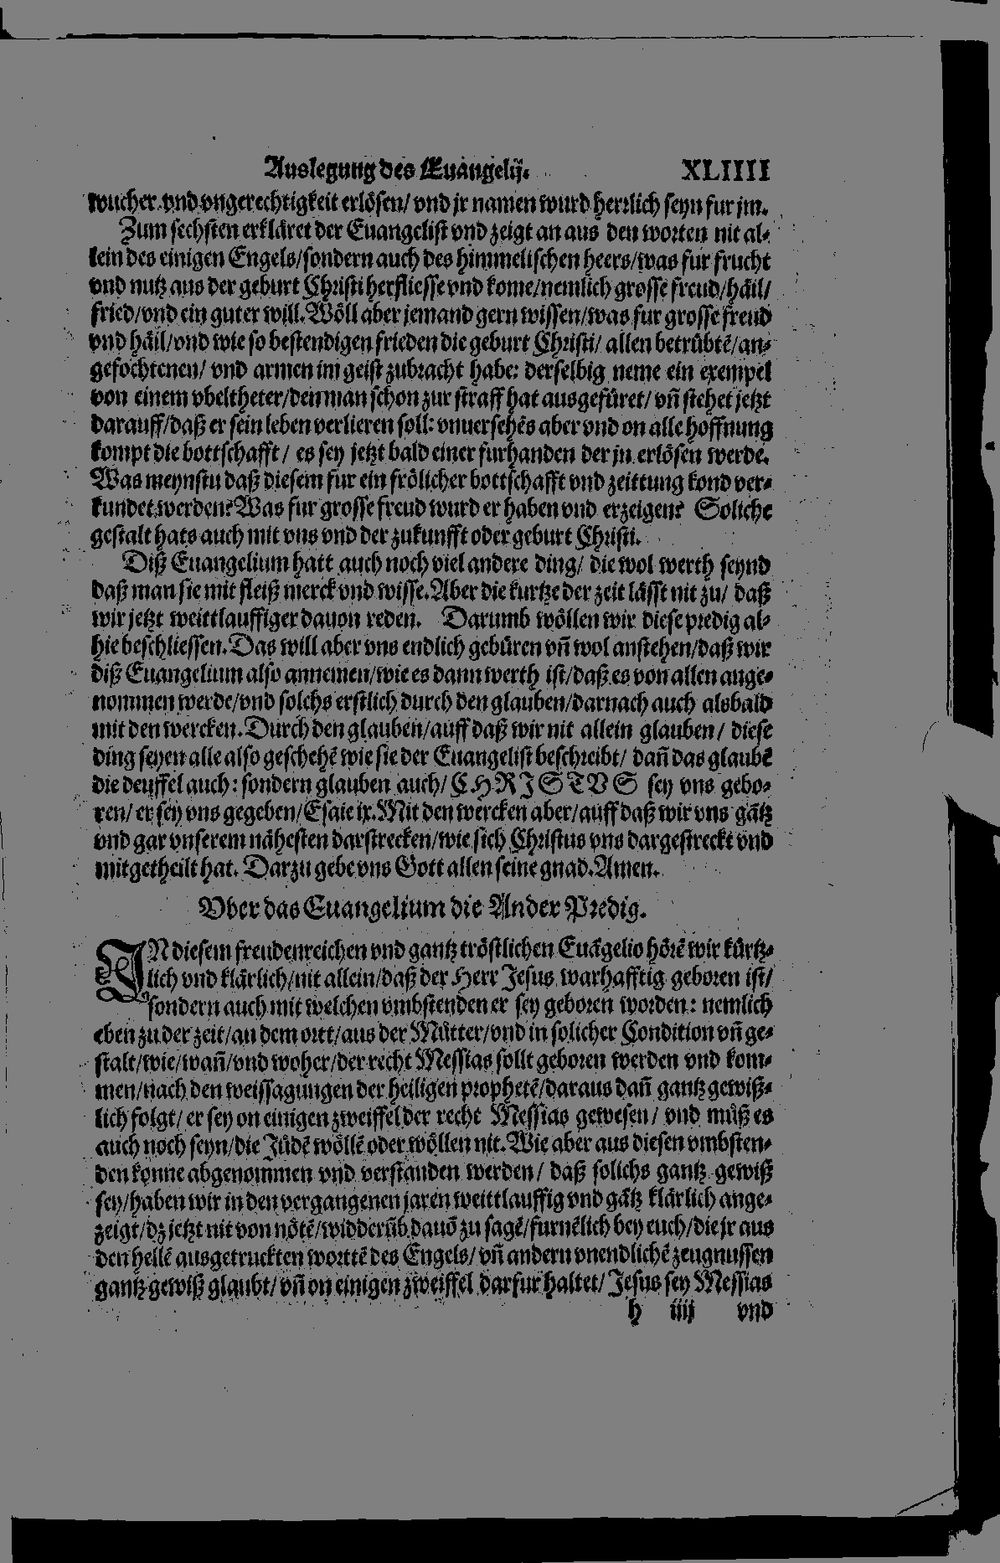 Auslegung des Euangelij. XLIIII
wucher vnd vngerechtigkeit erlösen/ vnd jr namen wurd herrlich seyn fur jm.
Zum sechsten erkläret der Euangelist vnd zeigt an aus den worten nit al-
lein des einigen Engels/sondern auch des himmelischen heers/was fur frucht
vnd nutz aus der geburt Christi herfliesse vnd kome/nemlich grosse freud/häil/
fried/vnd ein guter will. Wöll aber jemand gern wissen/was fur grosse freud
vnd häil/vnd wie so bestendigen frieden die geburt Christi/ allen betrübtē/an-
gefochtenen/ vnd armen im geist zubracht habe: derselbig neme ein exempel
von einem vbeltheter/den man schon zur straff hat ausgefüret/ vn̄ stehet jetzt
darauff/daß er sein leben verlieren soll: vnuersehēs aber vnd on alle hoffnung
kompt die bottschafft/ es sey jetzt bald einer furhanden der jn erlösen werde.
Was meynstu daß diesem fur ein frölicher bottschafft vnd zeittung kond ver-
kundet werden? Was fur grosse freud wurd er haben vnd erzeigen? Soliche
gestalt hats auch mit vns vnd der zukunfft oder geburt Christi.
Diß Euangelium hatt auch noch viel andere ding/ die wol werth seynd
daß man sie mit fleiß merck vnd wisse. Aber die kurtze der zeit lässt nit zu/ daß
wir jetzt weittlauffiger dauon reden. Darumb wöllen wir diese predig al-
hie beschliessen. Das will aber vns endlich gebüren vn̄ wol anstehen/daß wir
diß Euangelium also annemen/wie es dann werth ist/daß es von allen ange-
nommen werde/vnd solchs erstlich durch den glauben/darnach auch alsbald
mit den wercken. Durch den glauben/auff daß wir nit allein glauben/ diese
ding seyen alle also geschehē wie sie der Euangelist beschreibt/ dan̄ das glaubē
die deuffel auch: sondern glauben auch/ CHRISTVS sey vns gebo-
ren/ er sey vns gegeben/Esaie ix. Mit den wercken aber/auff daß wir vns gātz
vnd gar vnserem nähesten darstrecken/wie sich Christus vns dargestreckt vnd
mitgetheilt hat. Darzu gebe vns Gott allen seine gnad. Amen.
Vber das Euangelium die Ander Predig.
IN diesem freudenreichen vnd gantz tröstlichen Euāgelio hörē wir kürtz-
lich vnd klärlich/nit allein/daß der Herr Jesus warhafftig geboren ist/
sondern auch mit welchen vmbstenden er sey geboren worden: nemlich
eben zu der zeit/an dem ortt/aus der Mütter/vnd in solicher Condition vn̄ ge-
stalt/wie/wan̄/vnd woher/der recht Messias sollt geboren werden vnd kom-
men/nach den weissagungen der heiligen prophetē/daraus dan̄ gantz gewiß-
lich folgt/ er sey on einigen zweiffel der recht Messias gewesen/ vnd müß es
auch noch seyn/die Jüdē wöllē oder wöllen nit. Wie aber aus diesen vmbsten-
den konne abgenommen vnd verstanden werden/ daß solichs gantz gewiß
sey/haben wir in den vergangenen jaren weittlauffig vnd gātz klärlich ange-
zeigt/dz jetzt nit von nötē/widderūb dauō zu sagē/furnēlich bey euch/die jr aus
den hellē ausgetruckten worttē des Engels/ vn̄ andern vnendlichē zeugnussen
gantz gewiß glaubt/ vn̄ on einigen zweiffel darfur haltet/ Jesus sey Messias
h iiij vnd